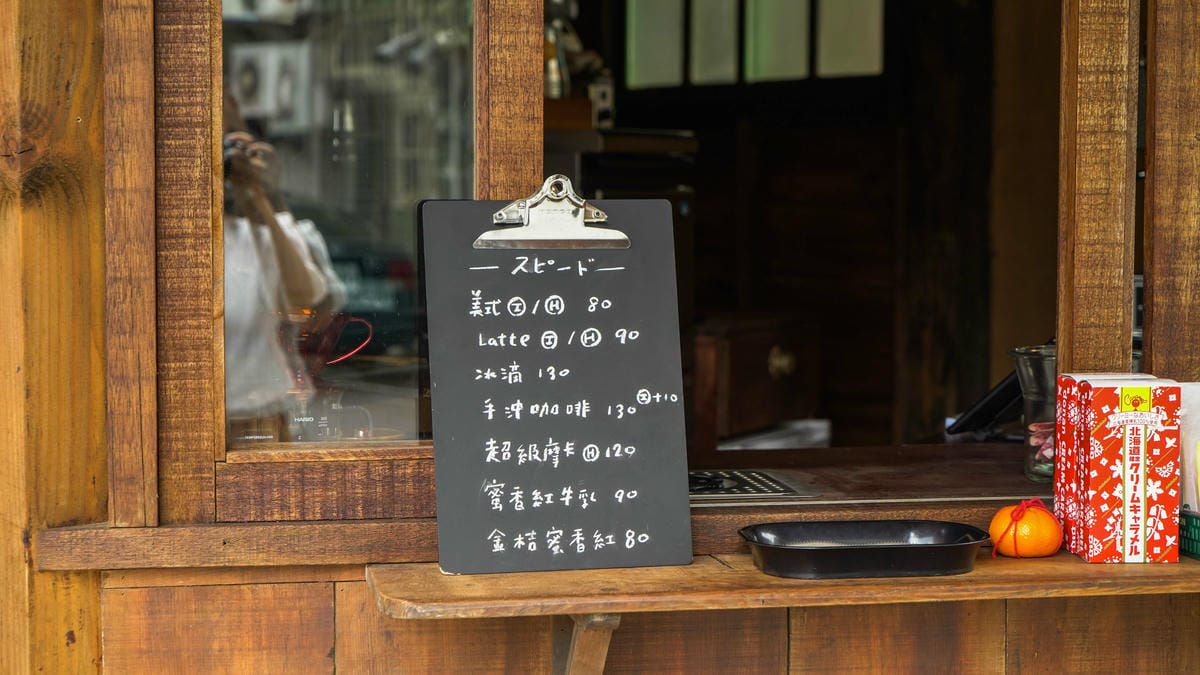 — スピード —
美式 Ⓘ / Ⓗ 80
Latte Ⓘ / Ⓗ 90
冰滴 130
手沖咖啡 130 Ⓘ+10
超級摩卡 Ⓗ 120
蜜香紅牛乳 90
金桔蜜香紅 80
HARIO
北海道
クリームキャラメル